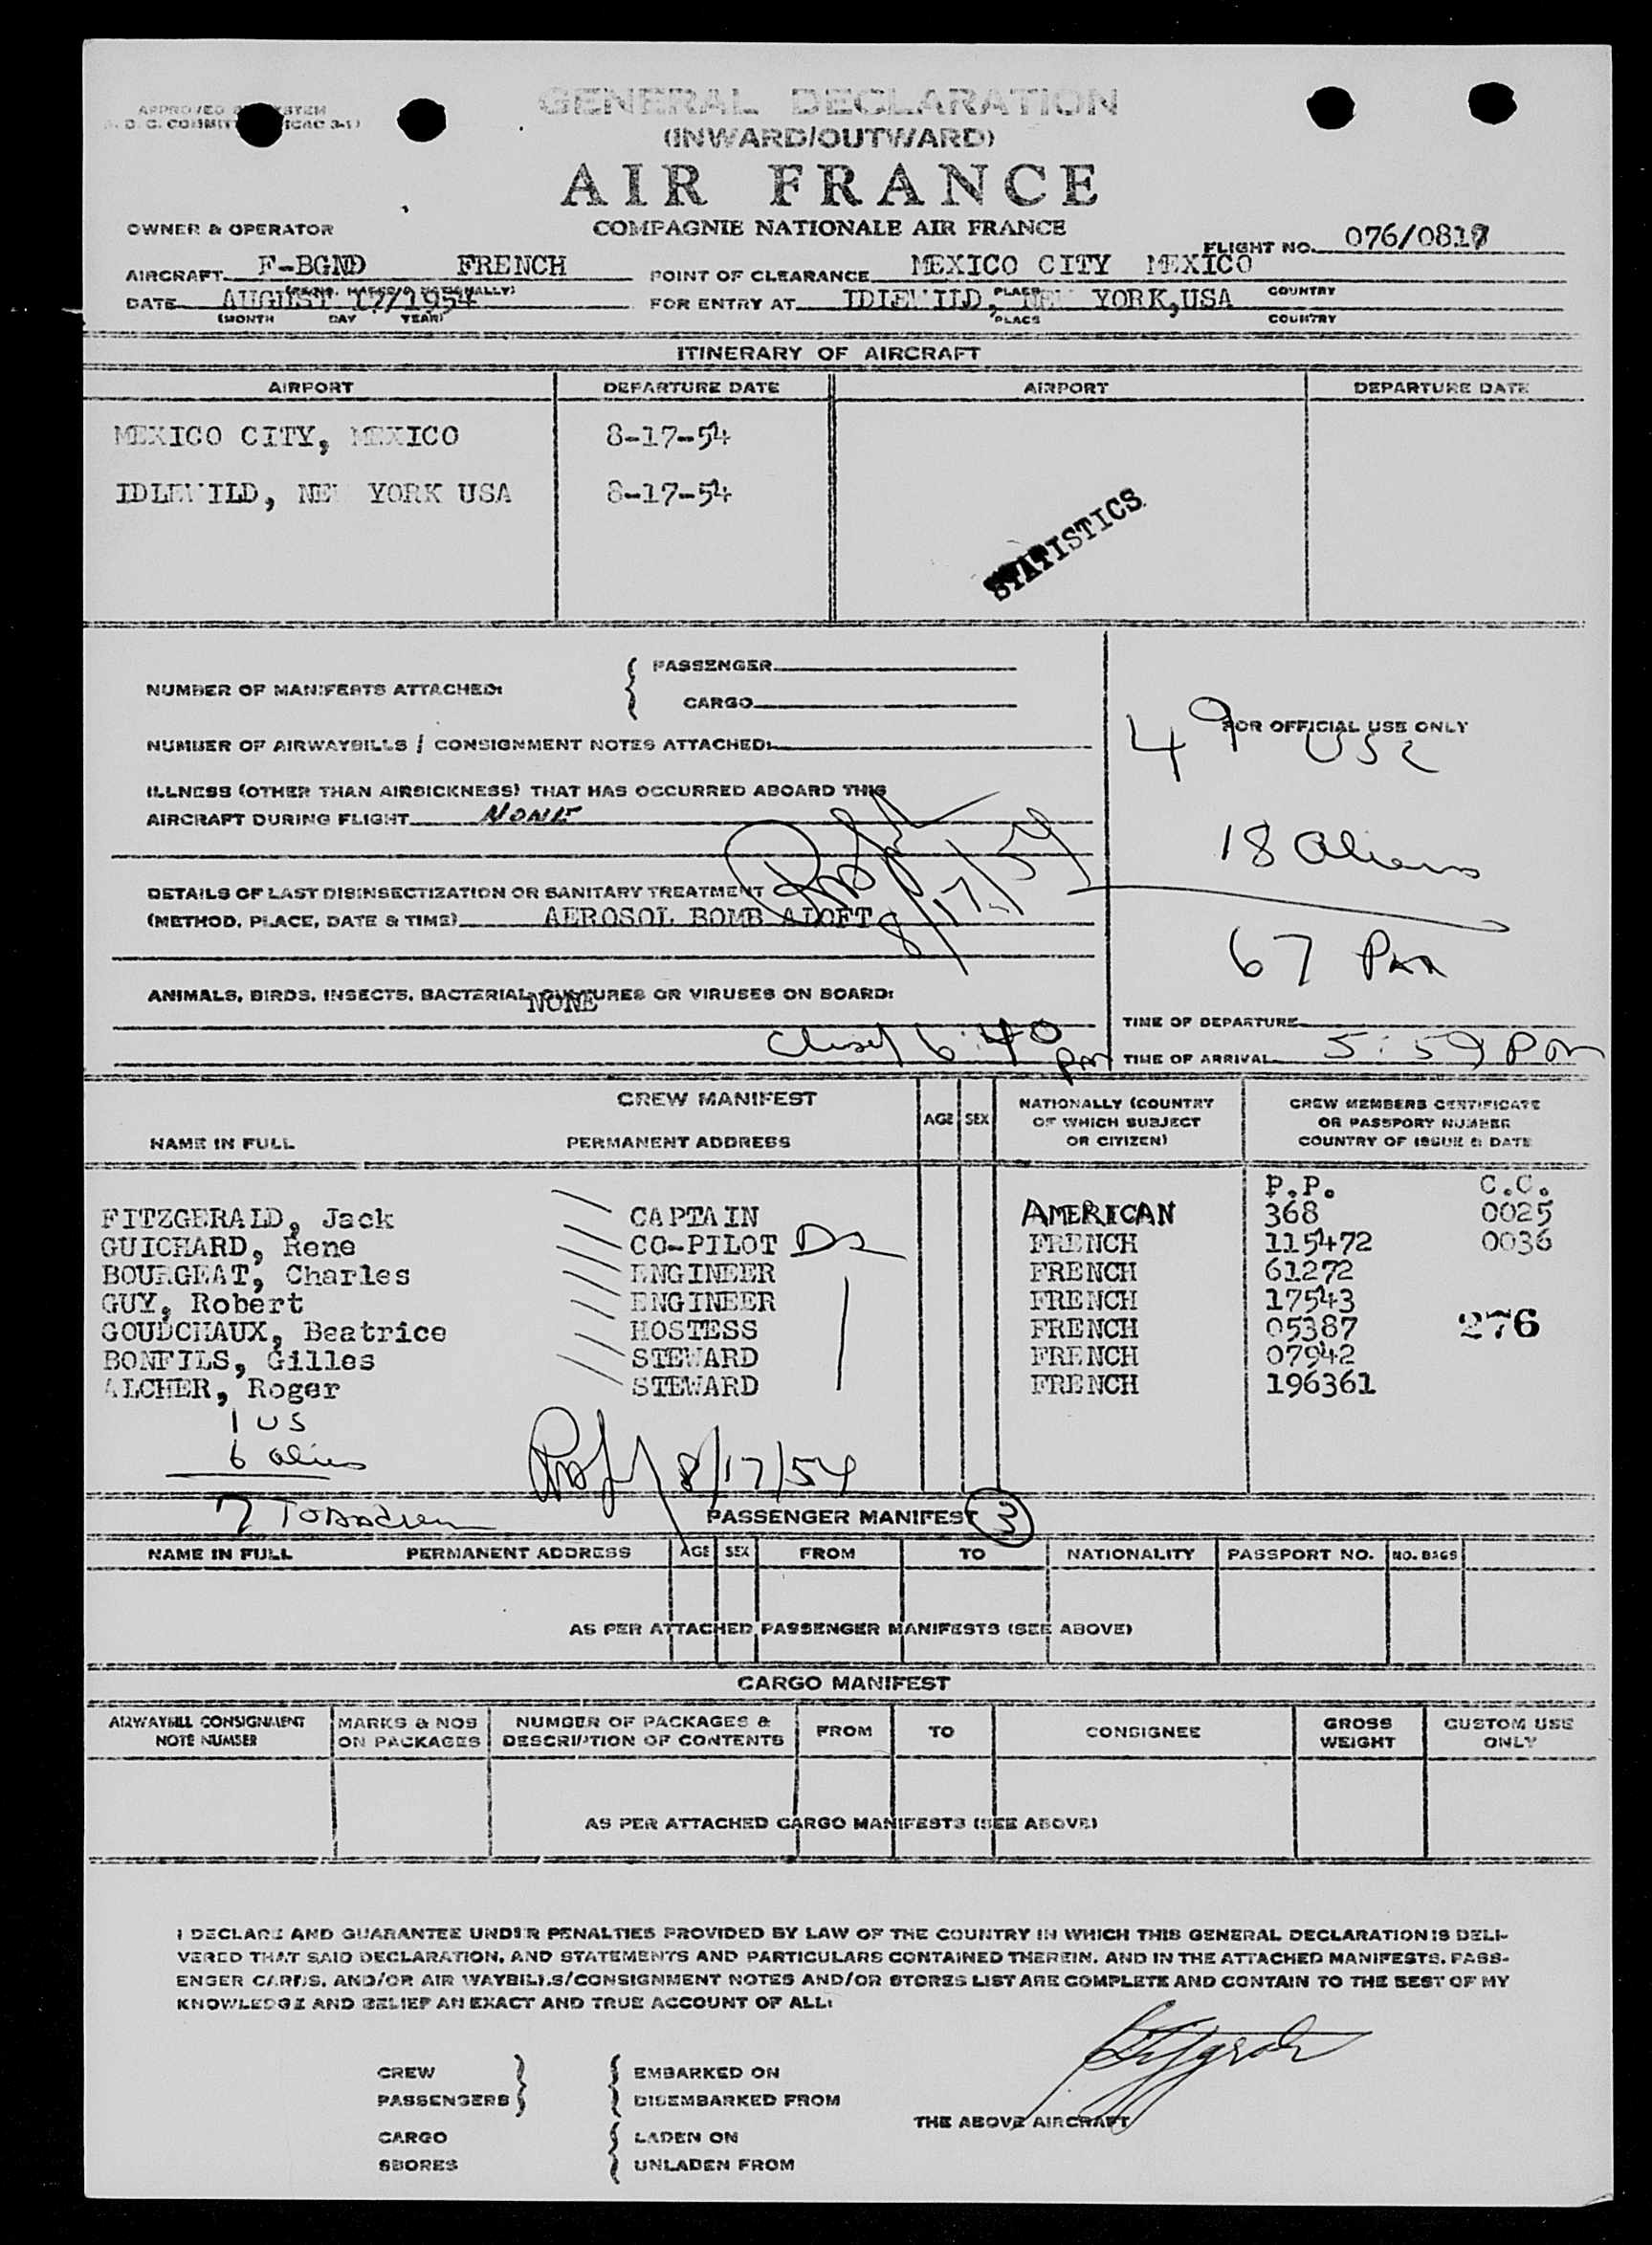 GENERAL DECLARATION
(INWARD/OUTWARD)
AIR FRANCE
COMPAGNIE NATIONALE AIR FRANCE
OWNER & OPERATOR
FLIGHT NO. 076/0817
AIRCRAFT F-BGND FRENCH POINT OF CLEARANCE MEXICO CITY MEXICO
PLACE COUNTRY
DATE AUGUST 17/1954 FOR ENTRY AT IDLEWILD, NEW YORK,USA
(MONTH DAY YEAR) PLACE COUNTRY
ITINERARY OF AIRCRAFT
AIRPORT DEPARTURE DATE AIRPORT DEPARTURE DATE
MEXICO CITY, MEXICO 8-17-54
IDLEWILD, NEW YORK USA 8-17-54
STATISTICS
NUMBER OF MANIFESTS ATTACHED: { PASSENGER
CARGO
NUMBER OF AIRWAYBILLS / CONSIGNMENT NOTES ATTACHED:
FOR OFFICIAL USE ONLY
49 USC
ILLNESS (OTHER THAN AIRSICKNESS) THAT HAS OCCURRED ABOARD THIS
AIRCRAFT DURING FLIGHT NONE
18 aliens
8/17/54
DETAILS OF LAST DISINSECTIZATION OR SANITARY TREATMENT
(METHOD, PLACE, DATE & TIME) AEROSOL BOMB ALOFT
67 Pax
ANIMALS, BIRDS, INSECTS, BACTERIAL CULTURES OR VIRUSES ON BOARD:
NONE
TIME OF DEPARTURE
closed 6:40 pm
TIME OF ARRIVAL 5:59 Pm
CREW MANIFEST
NAME IN FULL PERMANENT ADDRESS AGE SEX NATIONALLY (COUNTRY OF WHICH SUBJECT OR CITIZEN) CREW MEMBERS CERTIFICATE OR PASSPORT NUMBER COUNTRY OF ISSUE & DATE
P.P. C.C.
FITZGERALD, Jack CAPTAIN AMERICAN 368 0025
GUICHARD, Rene CO-PILOT FRENCH 115472 0036
BOURGEAT, Charles ENGINEER FRENCH 61272
GUY, Robert ENGINEER FRENCH 17543
GOUDCHAUX, Beatrice HOSTESS FRENCH 05387 276
BONFILS, Gilles STEWARD FRENCH 07942
ALCHER, Roger STEWARD FRENCH 196361
1 US
6 aliens
8/17/54
7
PASSENGER MANIFEST 3
NAME IN FULL PERMANENT ADDRESS AGE SEX FROM TO NATIONALITY PASSPORT NO. NO. BAGS
AS PER ATTACHED PASSENGER MANIFESTS (SEE ABOVE)
CARGO MANIFEST
AIRWAYBILL CONSIGNMENT NOTE NUMBER MARKS & NOS ON PACKAGES NUMBER OF PACKAGES & DESCRIPTION OF CONTENTS FROM TO CONSIGNEE GROSS WEIGHT CUSTOM USE ONLY
AS PER ATTACHED CARGO MANIFESTS (SEE ABOVE)
I DECLARE AND GUARANTEE UNDER PENALTIES PROVIDED BY LAW OF THE COUNTRY IN WHICH THIS GENERAL DECLARATION IS DELI-
VERED THAT SAID DECLARATION, AND STATEMENTS AND PARTICULARS CONTAINED THEREIN, AND IN THE ATTACHED MANIFESTS, PASS-
ENGER CARDS, AND/OR AIR WAYBILLS/CONSIGNMENT NOTES AND/OR STORES LIST ARE COMPLETE AND CONTAIN TO THE BEST OF MY
KNOWLEDGE AND BELIEF AN EXACT AND TRUE ACCOUNT OF ALL:
CREW EMBARKED ON
PASSENGERS DISEMBARKED FROM
THE ABOVE AIRCRAFT
CARGO LADEN ON
SBORES UNLADEN FROM